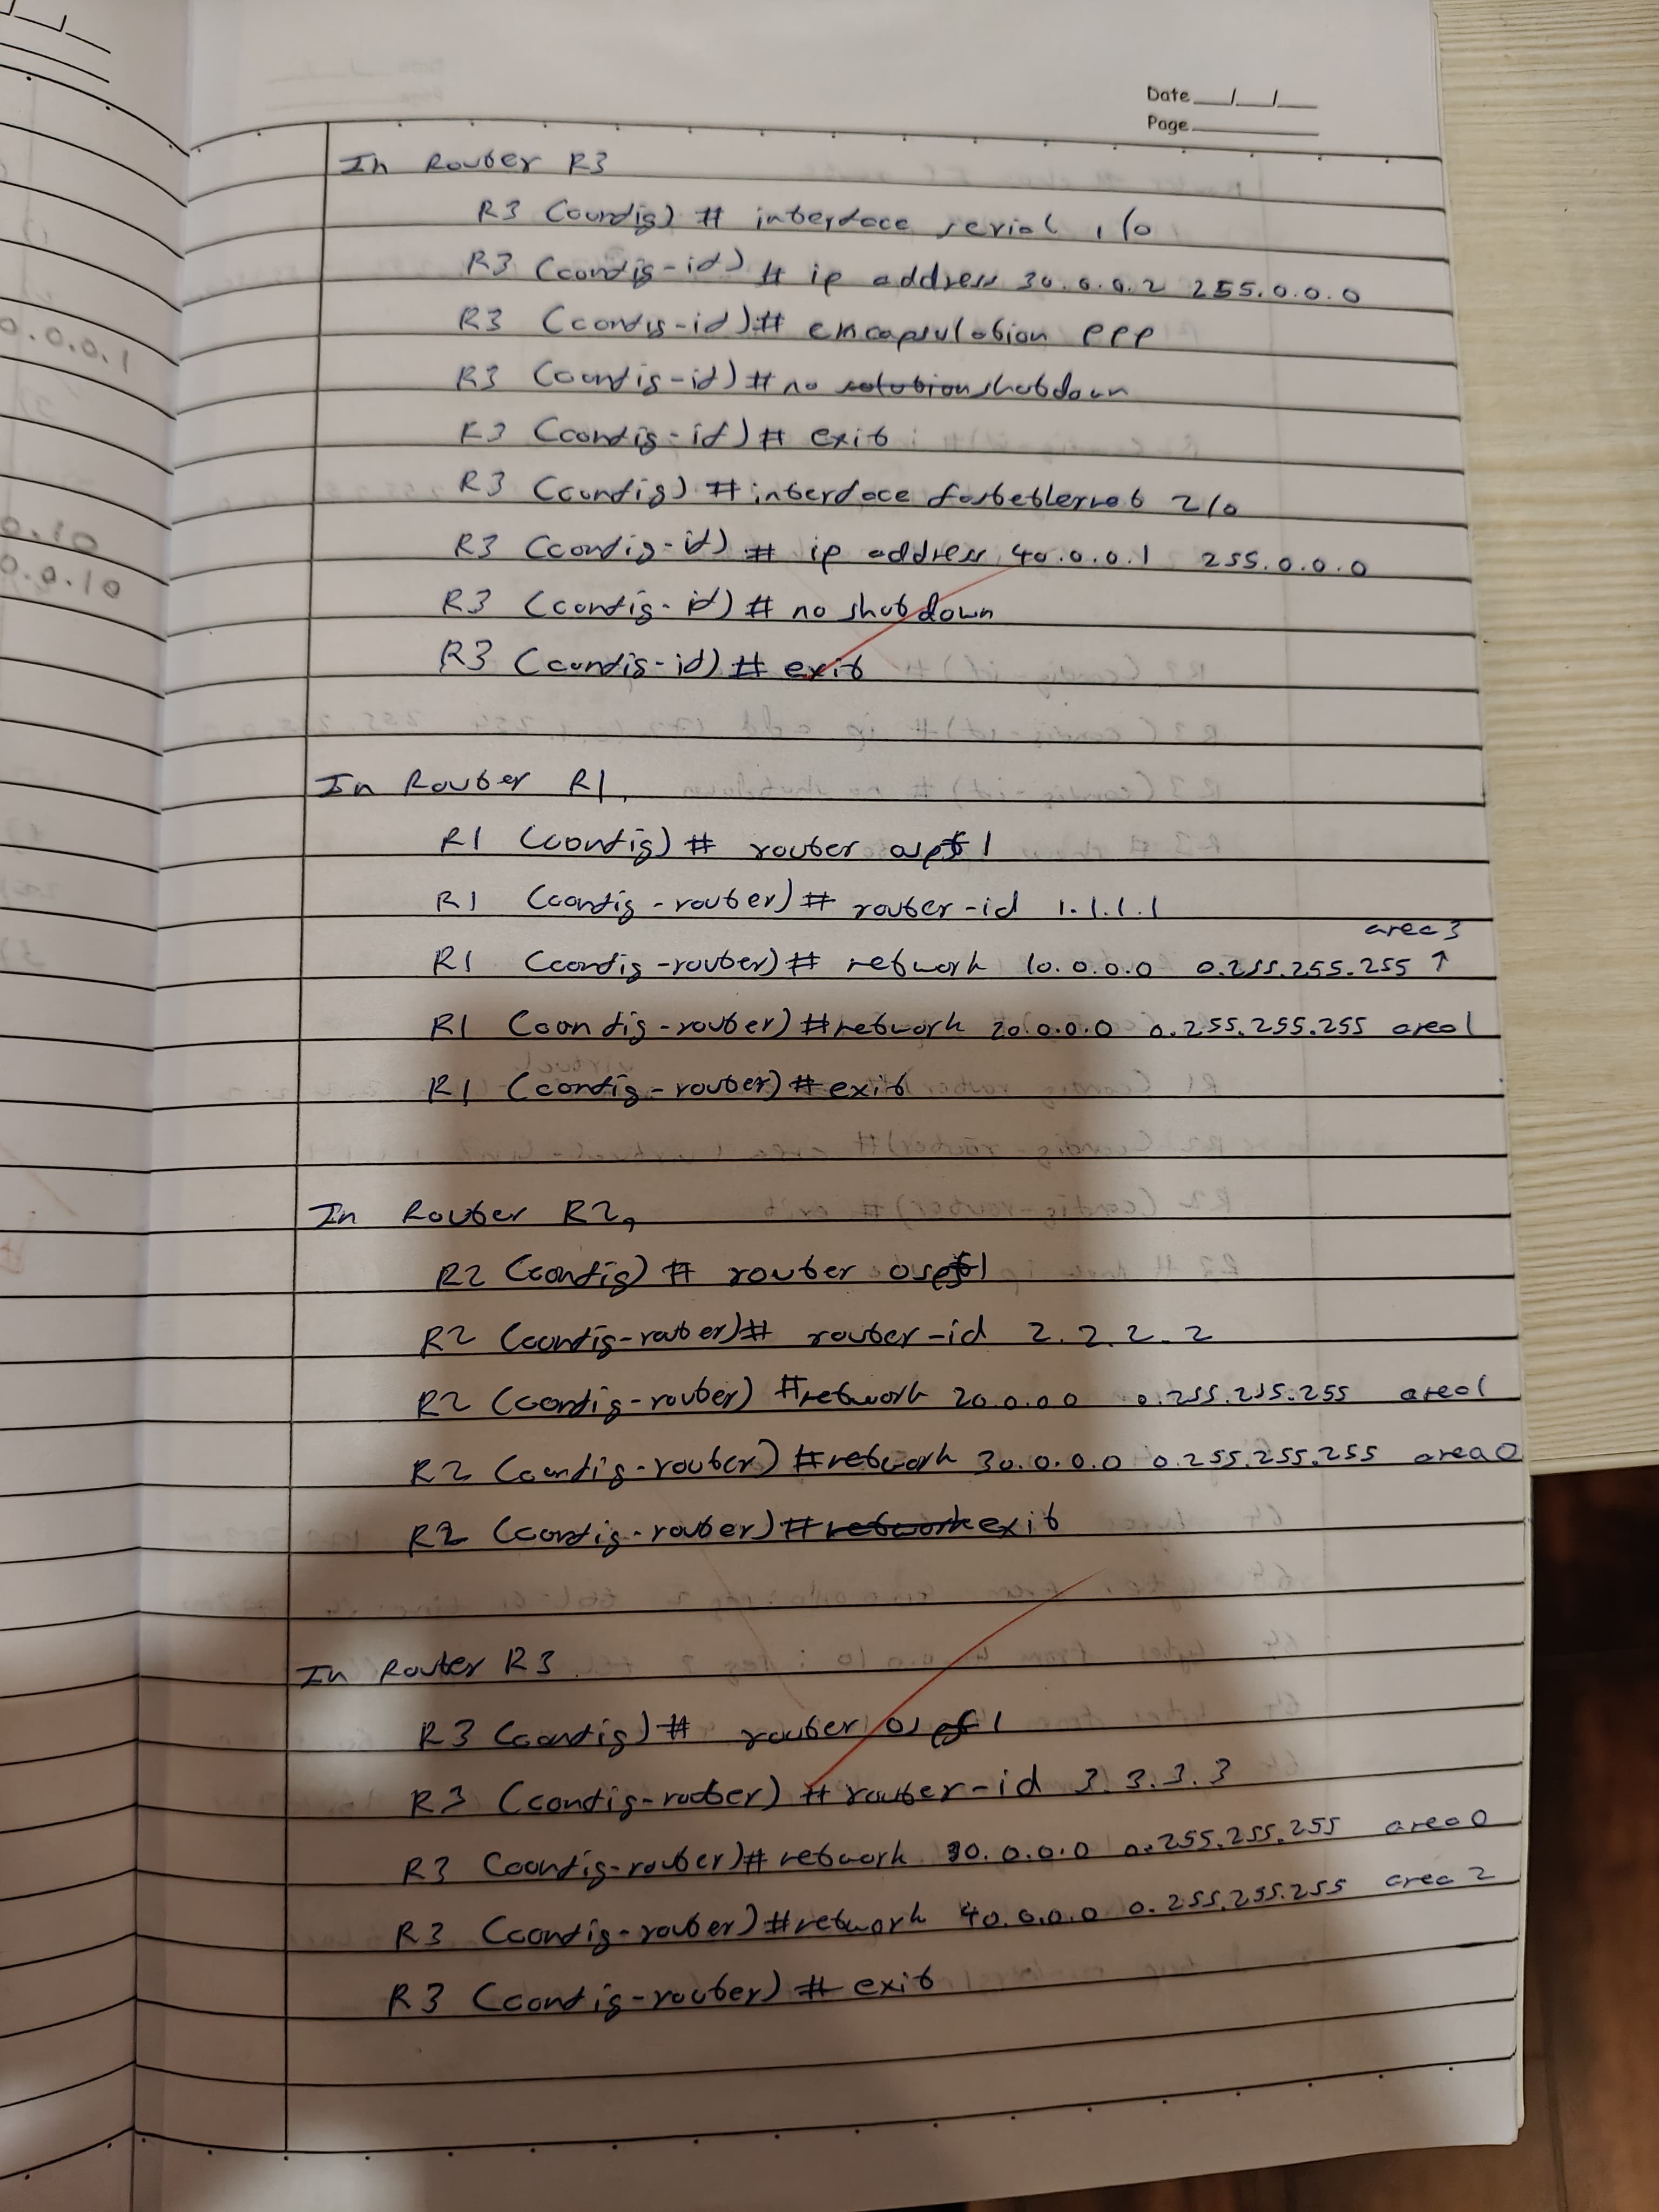 Date __/__/__
Page
In Router R3
R3 (config) # interface serial 1/0
R3 (config-if) # ip address 30.0.0.2 255.0.0.0
R3 (config-if) # encapsulation ppp
R3 (config-if) # no shutdown
R3 (config-if) # exit
R3 (config) # interface fastethernet 2/0
R3 (config-if) # ip address 40.0.0.1 255.0.0.0
R3 (config-if) # no shutdown
R3 (config-if) # exit
In Router R1,
R1 (config) # router ospf 1
R1 (config-router) # router-id 1.1.1.1
area 3
R1 (config-router) # network 10.0.0.0 0.255.255.255 ↑
R1 (config-router) # network 20.0.0.0 0.255.255.255 area 1
R1 (config-router) # exit
In Router R2,
R2 (config) # router ospf 1
R2 (config-router) # router-id 2.2.2.2
R2 (config-router) # network 20.0.0.0 0.255.255.255 area 1
R2 (config-router) # network 30.0.0.0 0.255.255.255 area 0
R2 (config-router) # exit
In Router R3
R3 (config) # router ospf 1
R3 (config-router) # router-id 3.3.3.3
R3 (config-router) # network 30.0.0.0 0.255.255.255 area 0
R3 (config-router) # network 40.0.0.0 0.255.255.255 area 2
R3 (config-router) # exit
0.0.0.1
0.10
0.0.10